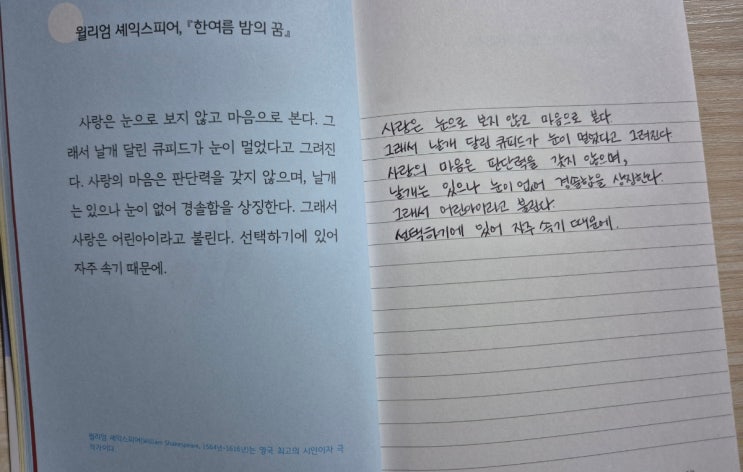 윌리엄 셰익스피어, 『한여름 밤의 꿈』
사랑은 눈으로 보지 않고 마음으로 본다. 그
래서 날개 달린 큐피드가 눈이 멀었다고 그려진
다. 사랑의 마음은 판단력을 갖지 않으며, 날개
는 있으나 눈이 없어 경솔함을 상징한다. 그래서
사랑은 어린아이라고 불린다. 선택하기에 있어
자주 속기 때문에.
윌리엄 셰익스피어(William Shakespeare, 1564년~1616년)는 영국 최고의 시인이자 극
작가이다
사랑은 눈으로 보지 않고 마음으로 본다
그래서 날개 달린 큐피드가 눈이 멀었다고 그려진다
사랑의 마음은 판단력을 갖지 않으며,
날개는 있으나 눈이 없어 경솔함을 상징한다.
그래서 어린아이라고 불린다.
선택하기에 있어 자주 속기 때문에.